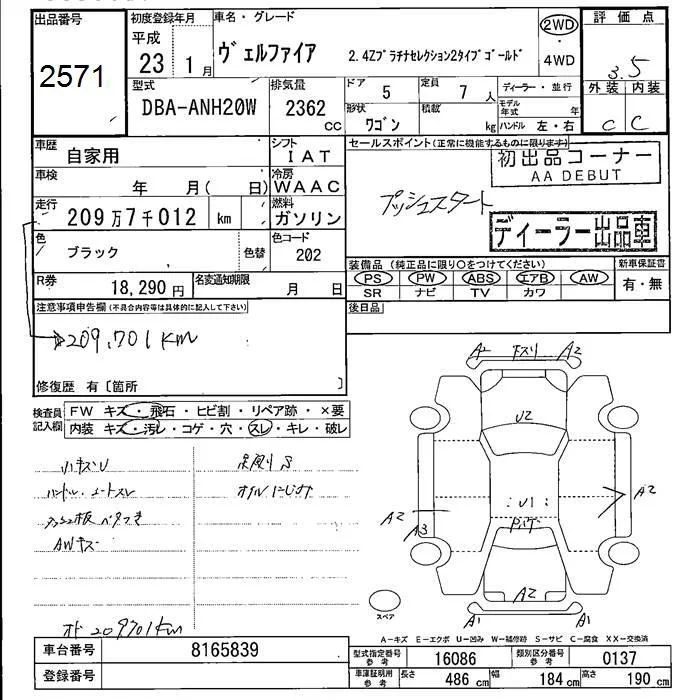 出品番号
2571
初度登録年月
平成
23 1月
車名・グレード
ヴェルファイア
2.4Zプラチナセレクション2タイプゴールド
2WD
・
4WD
評価点
3.5
外装 内装
C C
型式
DBA-ANH20W
排気量
2362
CC
ドア
5
定員
7 人
形状
ワゴン
積載
kg
ディーラー・並行
モデル
年式 年
ハンドル 左・右
車歴
自家用
シフト
IAT
車検
年 月( 日)
冷房
WAAC
走行
209万7千012 km
燃料
ガソリン
色
ブラック
色替
色コード
202
R券
18,290円
名変通知期限
月 日
セールスポイント(正常に機能するものに限ります)
初出品コーナー
AA DEBUT
プッシュスタート
ディーラー出品車
装備品(純正品に限り○をつけてください)
PS PW ABS エアB AW
SR ナビ TV カワ
新車保証書
有・無
後日品
注意事項申告欄(不具合内容等は具体的に記入して下さい)
209,701km
修復歴 有〔箇所 〕
検査員
記入欄
FW キズ・飛石・ヒビ割・リペア跡・×要
内装 キズ・汚レ・コゲ・穴・スレ・キレ・破レ
小キズU
AWキズ
209701km
A2 キズリ A2
U2
U1
A2
A3
A2
A2
A1 A1
スペア
A-キズ E-エクボ U-凹み W-補修跡 S-サビ C-腐食 XX-交換済
車台番号
8165839
登録番号
型式指定番号
参考
16086
類別区分番号
参考
0137
車庫証明用
参考
長さ
486 cm
幅
184 cm
高さ
190 cm